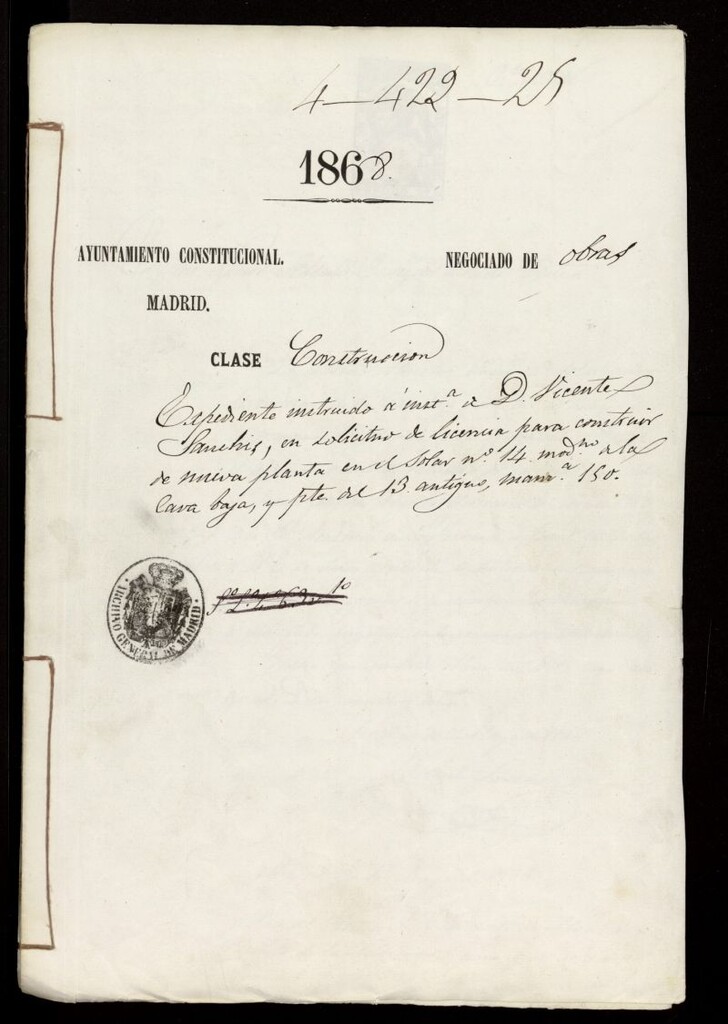 4-422-25
1868.
AYUNTAMIENTO CONSTITUCIONAL.
NEGOCIADO DE obras
MADRID.
CLASE Construccion
Expediente instruido á inst.ª de D. Vicente
Sanchis, en solicitud de licencia para construir
de nueva planta en el solar n.º 14 mod.no á la
Cava baja, y pte. del 13 antiguo, manz.ª 150.
ARCHIVO GENERAL DE MADRID